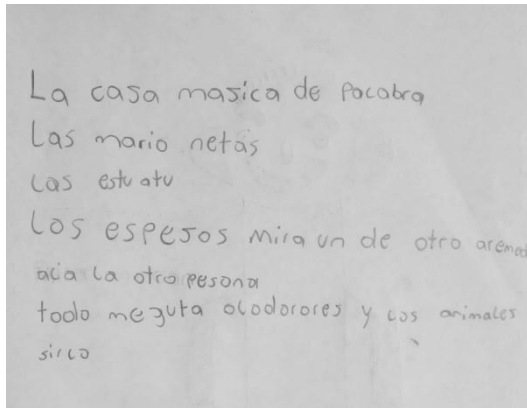 La casa masica de Pacabra
Las mario netas
Las estu atu
Los espesos mira un de otro aremad
acia la otro pesona
todo me guta olodorores y los animales
sirco